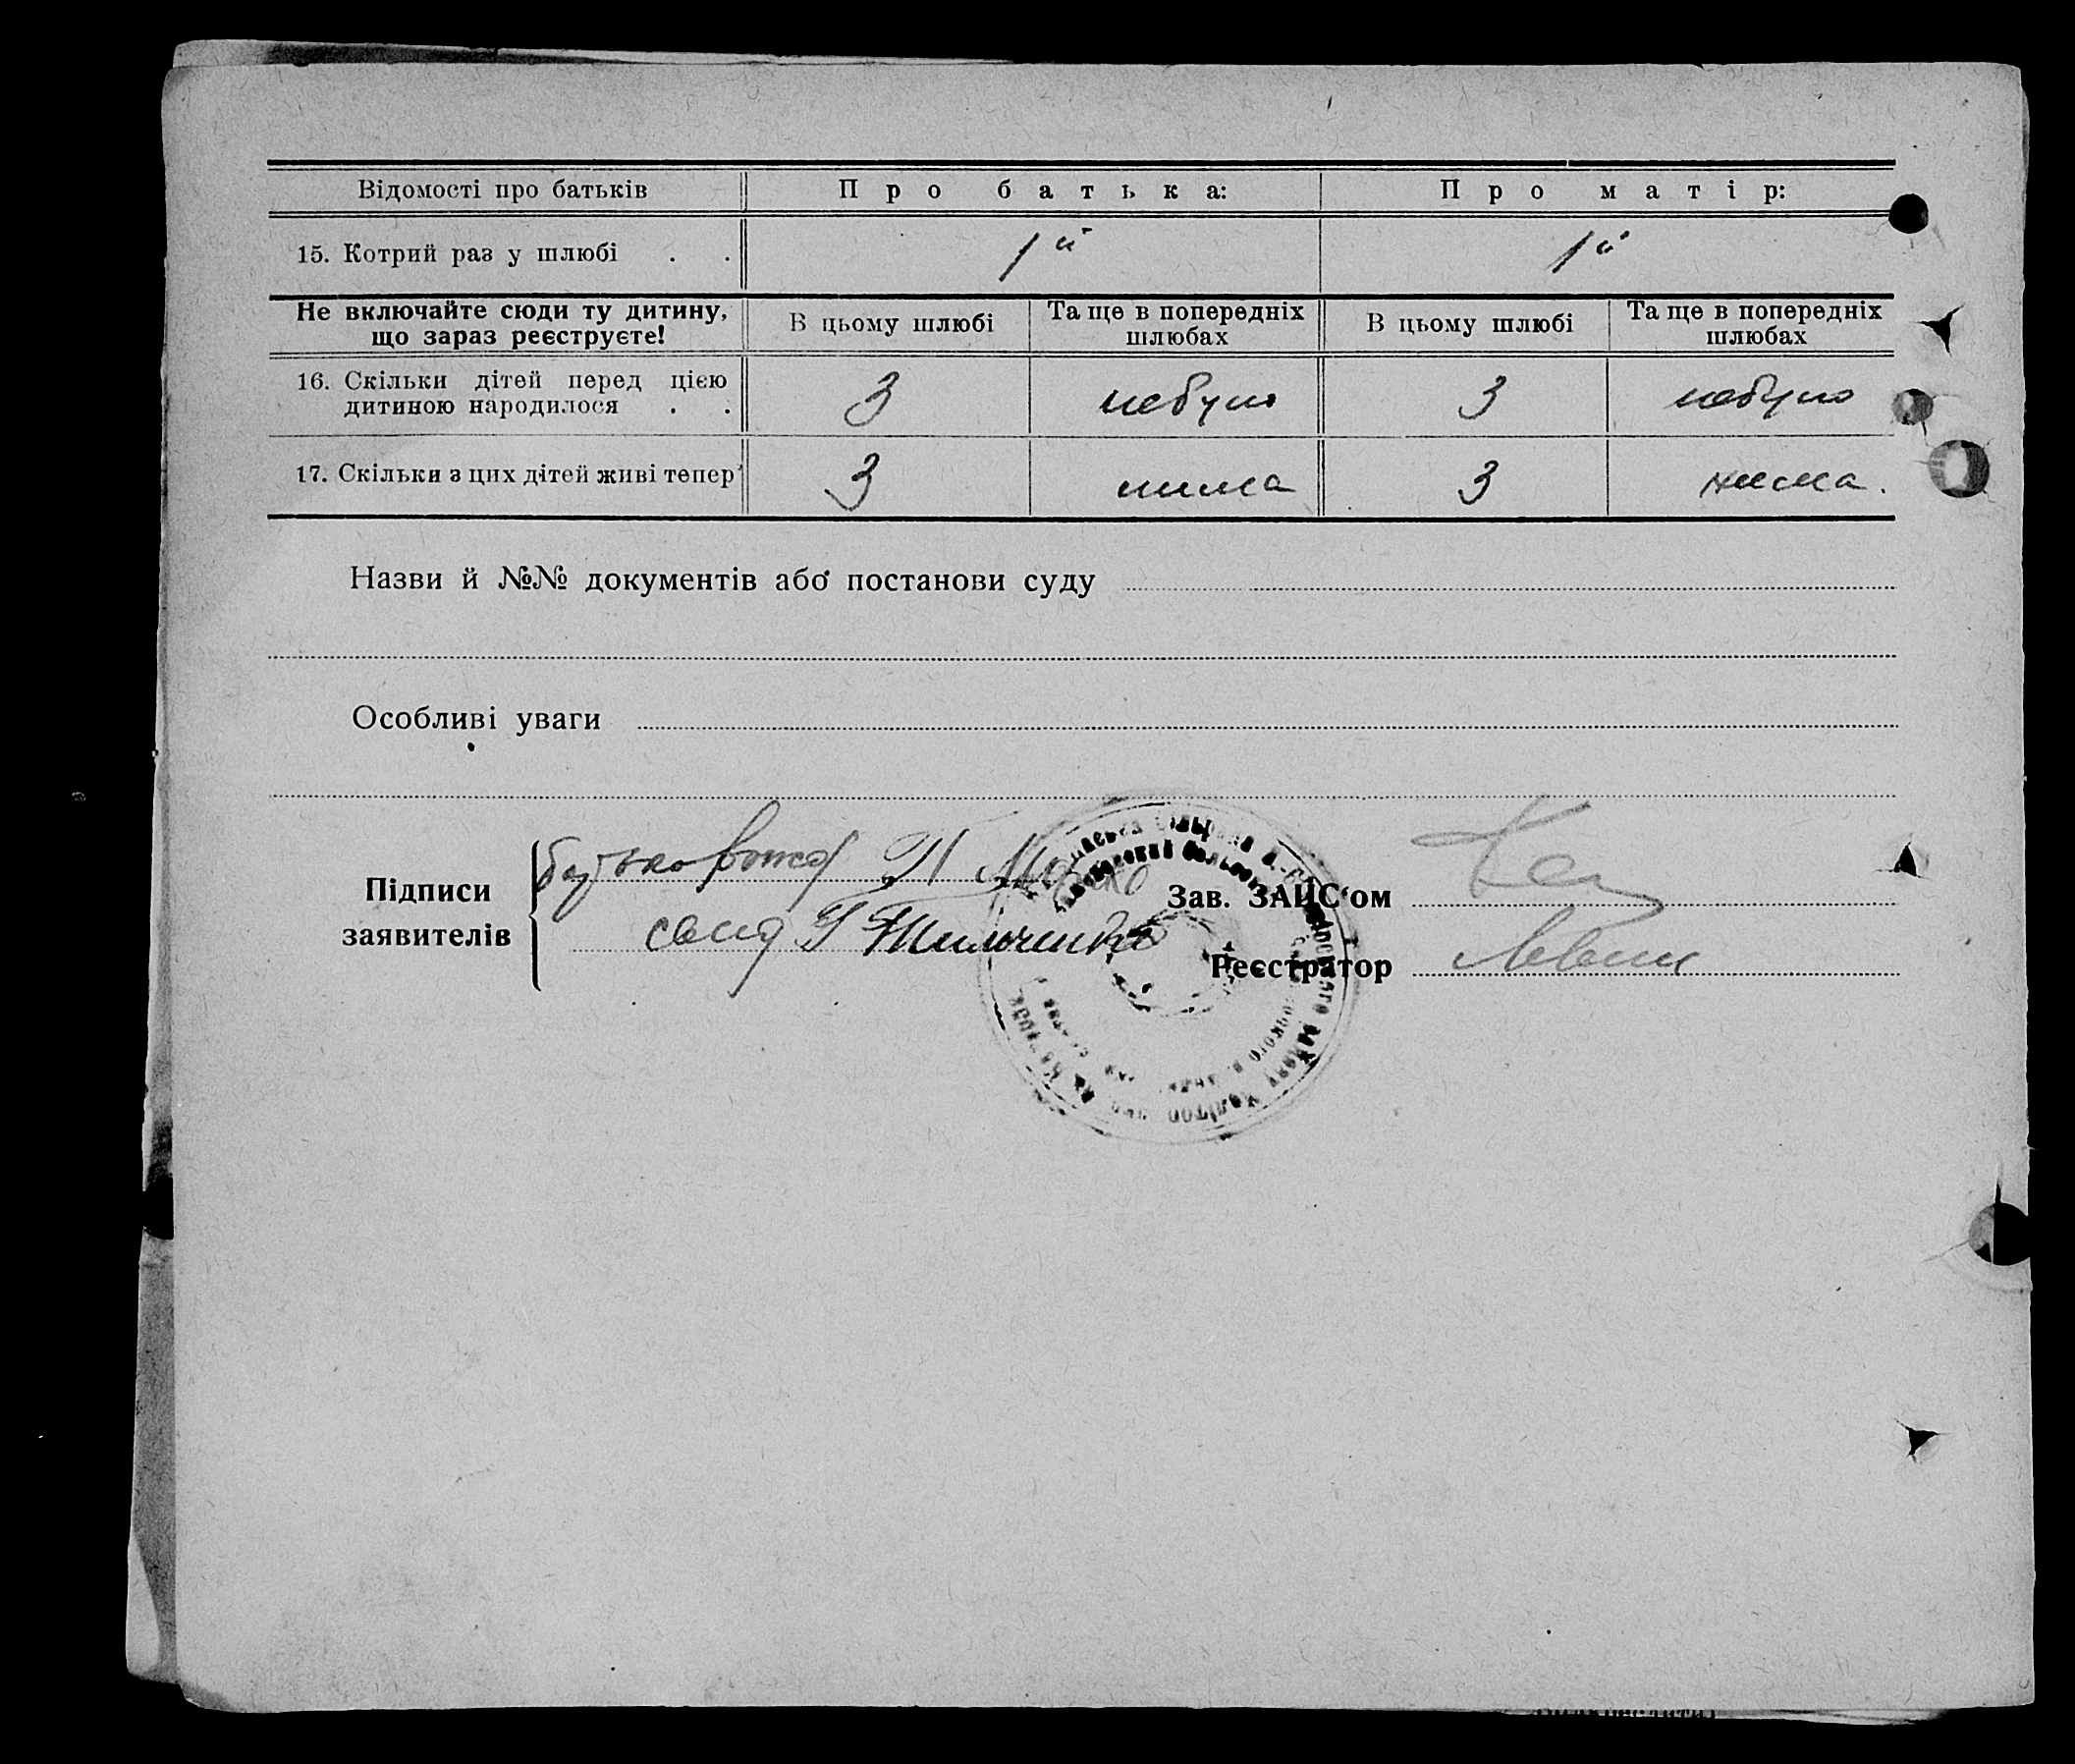 Відомості про батьків Про батька: Про матір:
15. Котрий раз у шлюбі . . 1й 1й
Не включайте сюди ту дитину, що зараз реєструєте! В цьому шлюбі Та ще в попередніх шлюбах В цьому шлюбі Та ще в попередніх шлюбах
16. Скільки дітей перед цією
дитиною народилося . . 3 небуло 3 небуло
17. Скільки з цих дітей живі тепер 3 нима 3 нима.
Назви й №№ документів або постанови суду
Особливі уваги
Підписи заявителів
Зав. ЗАЦС'ом
Реєстратор